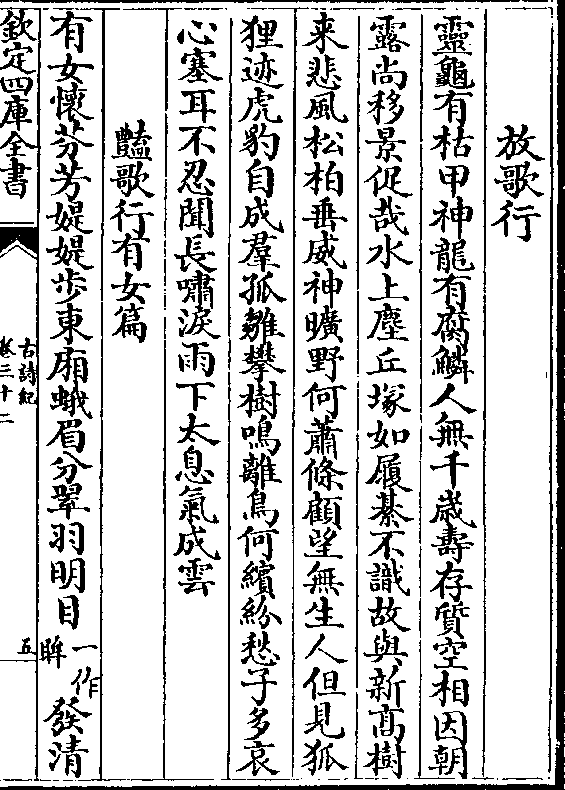 放歌行
靈龜有枯甲神龍有腐鱗人無千歲壽存質空相因朝
露尚移景促哉水上塵丘塚如履綦不識故與新高樹
来悲風松柏垂威神曠野何蕭條顧望無生人但見狐
狸迹虎豹自成羣孤雛攀樹鳴離鳥何繽紛愁子多哀
心塞耳不忍聞長嘯淚雨下太息氣成雲
豔歌行有女篇
有女懷芬芳媞媞步東廂蛾眉分翠羽明目一作眸發清
欽定四庫全書
古詩紀
卷三十二
五